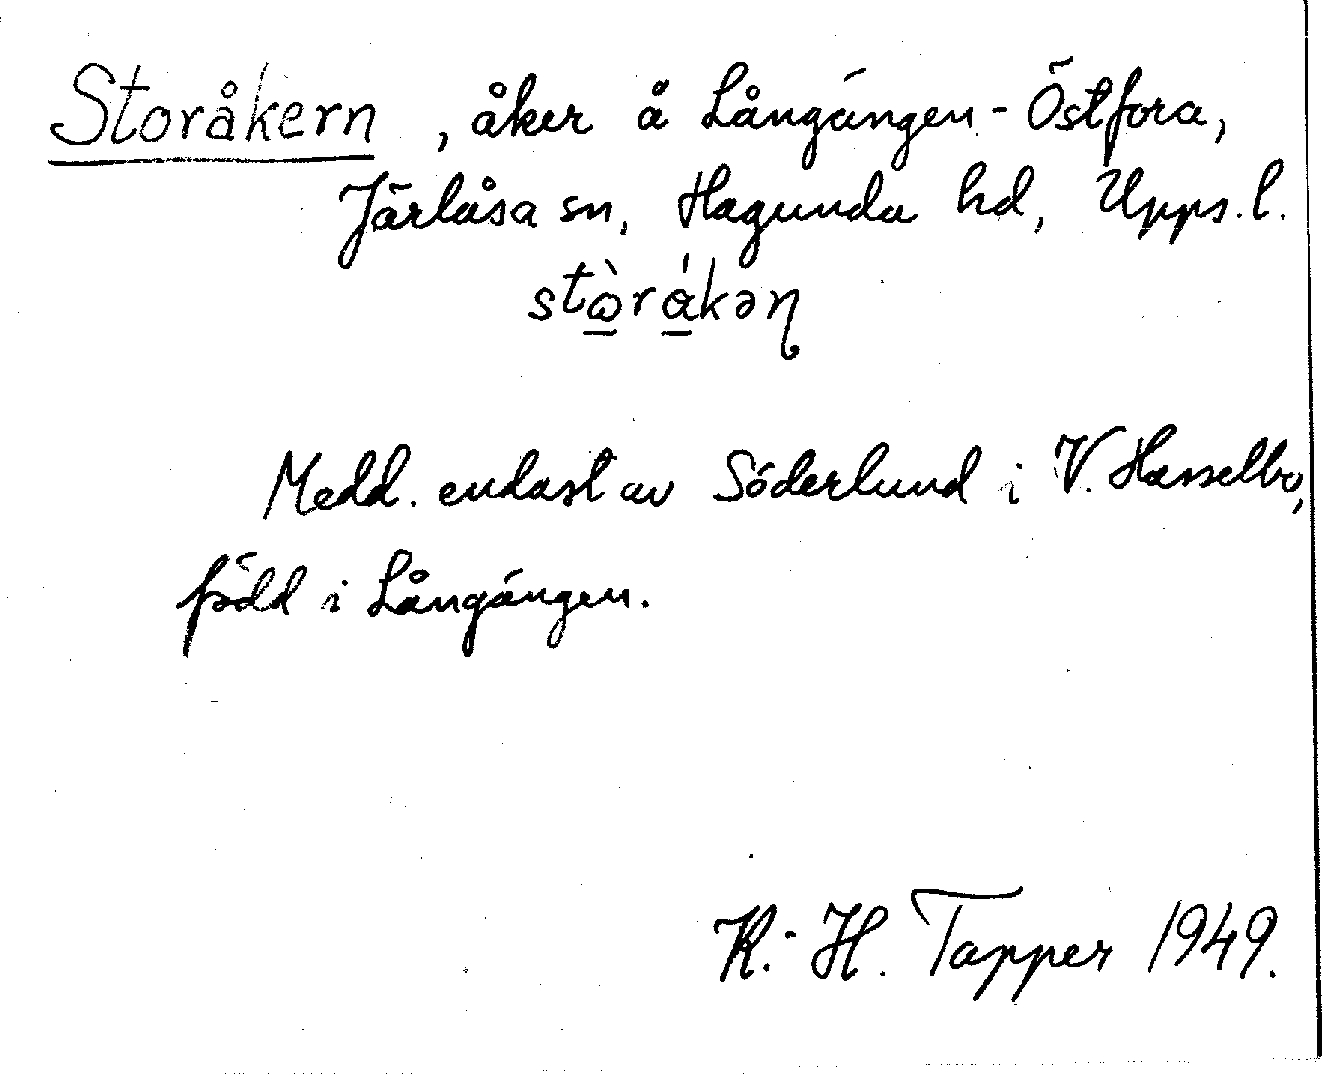 Storåkern, åker å Långängen-Östfora,
Järlåsa sn, Hagunda hd, Upps.l.
stὼ̲rá̲kəɳ
Medd. endast av Söderlund i V. Hässelbo,
född i Långängen.
K.-H. Tapper 1949.